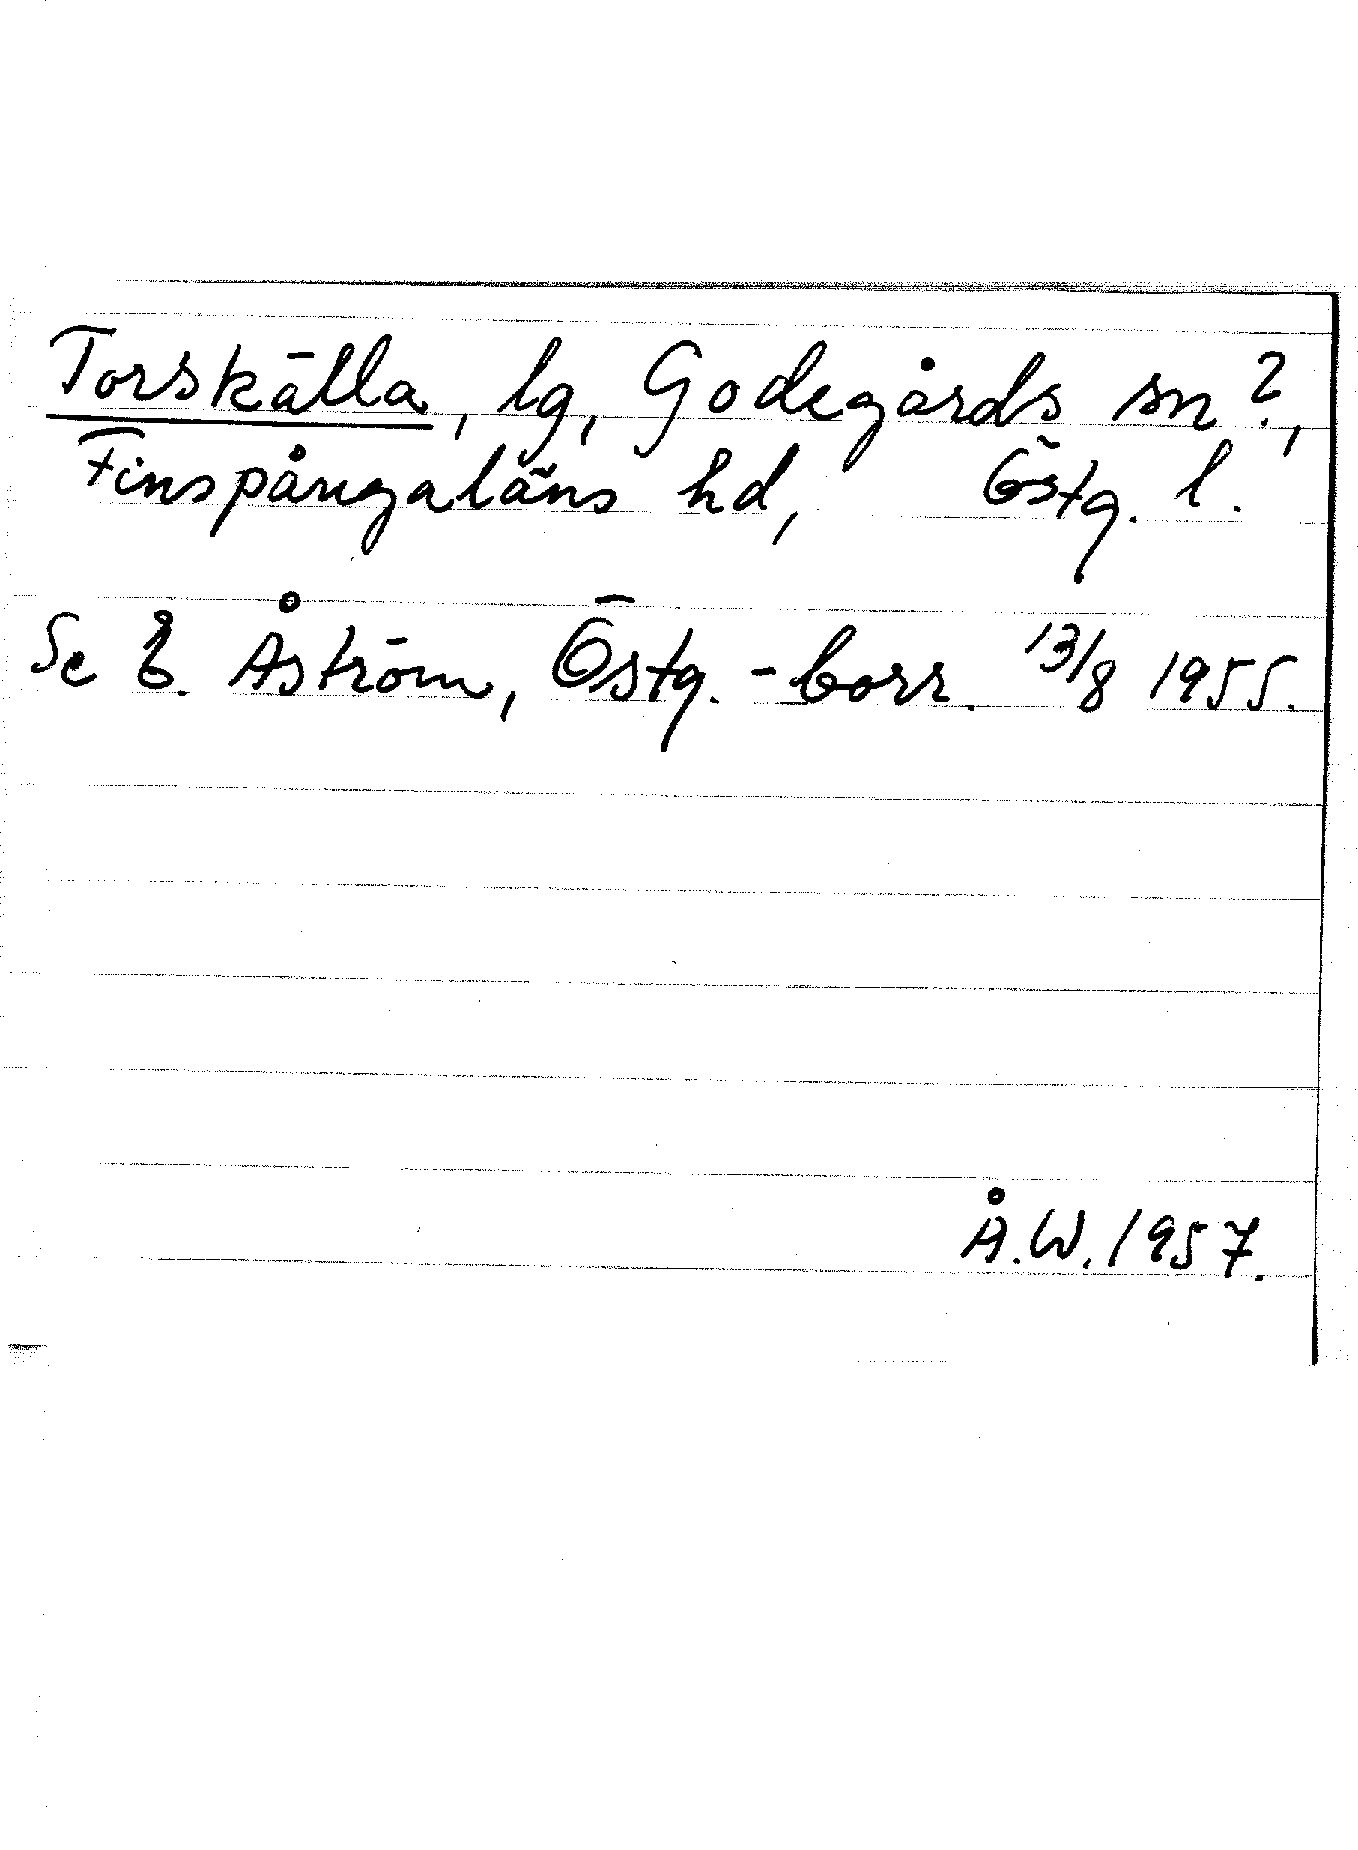 Torskälla, lg, Godegårds sn?,
Finspångaläns hd, Östg. l.
Se E. Åström, Östg.-Corr. 13/8 1955.
Å.W. 1957.